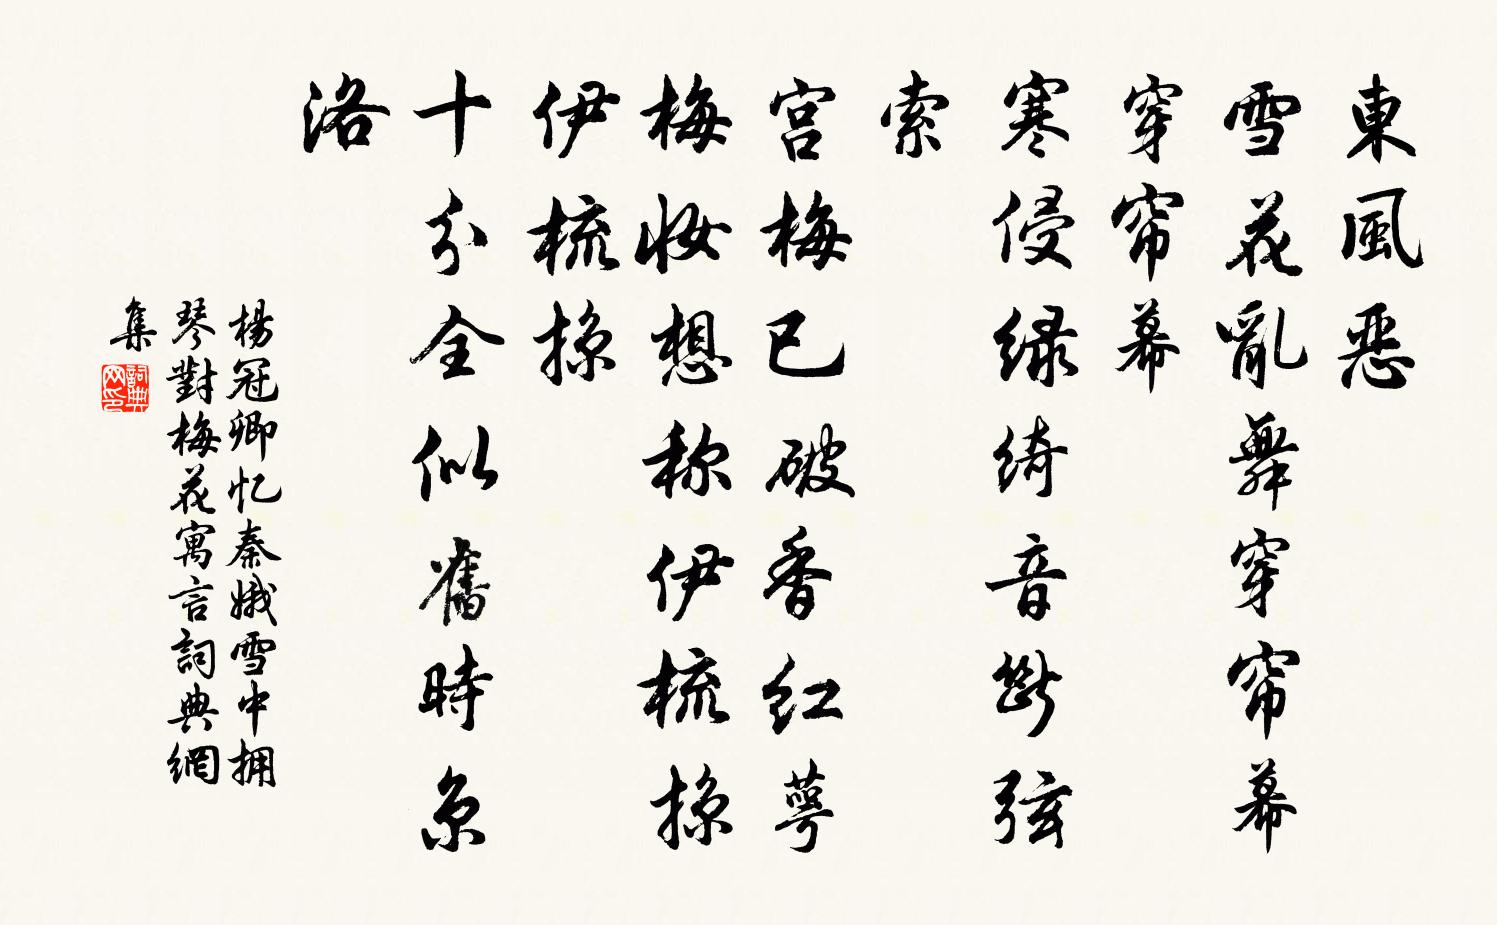 東風恶
雪花亂舞穿帘幕
穿帘幕
寒侵绿绮音斷弦
索
宫梅已破香红萼
梅妆想称伊梳掠
伊梳掠
十分全似舊時京
洛
楊冠卿忆秦娥雪中拥
琴對梅花寓言詞典網
集
詞典
网印